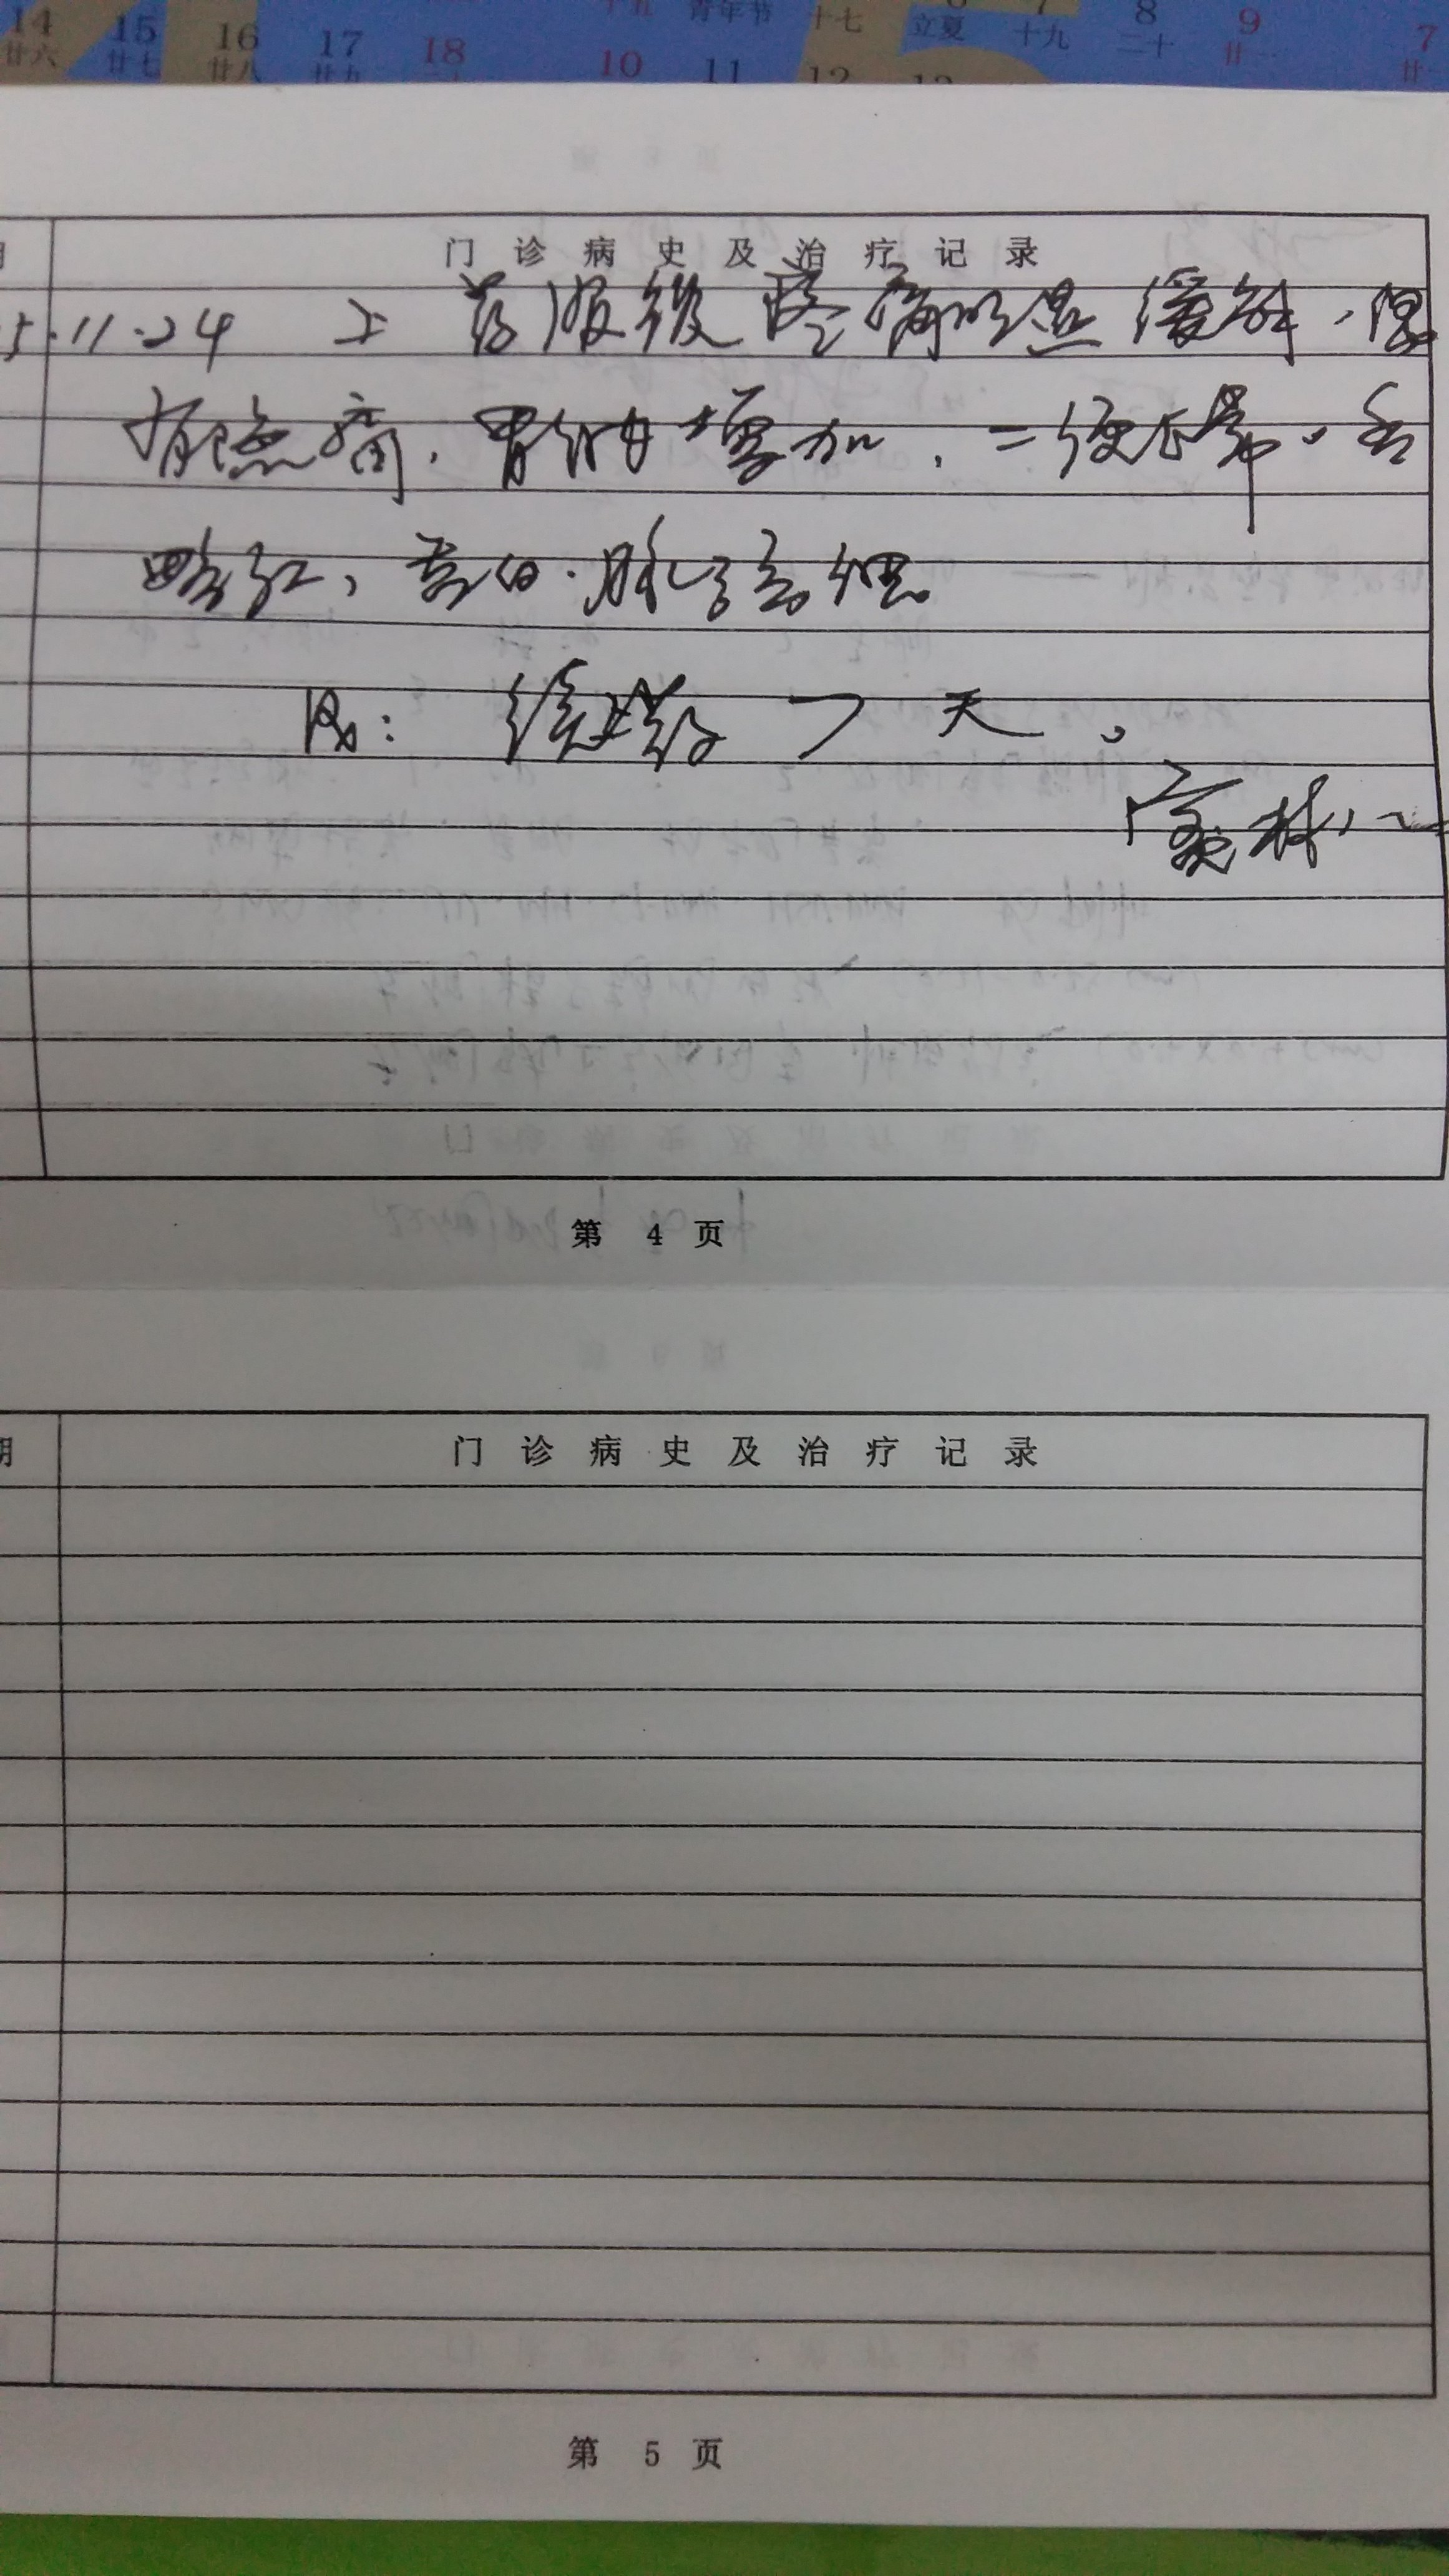 14 15 16 17 18 10 11 12 青年节 十七 立夏 十九 8 9 7
廿六 廿七 廿八 廿九 二十 廿一
门诊病史及治疗记录
5.11.24 上药服後疼痛明显缓解,偶
有点痛.胃纳增加,二便正常,舌
略红,苔白.脉弦细
Rx: 7天。
第 4 页
门诊病史及治疗记录
第 5 页